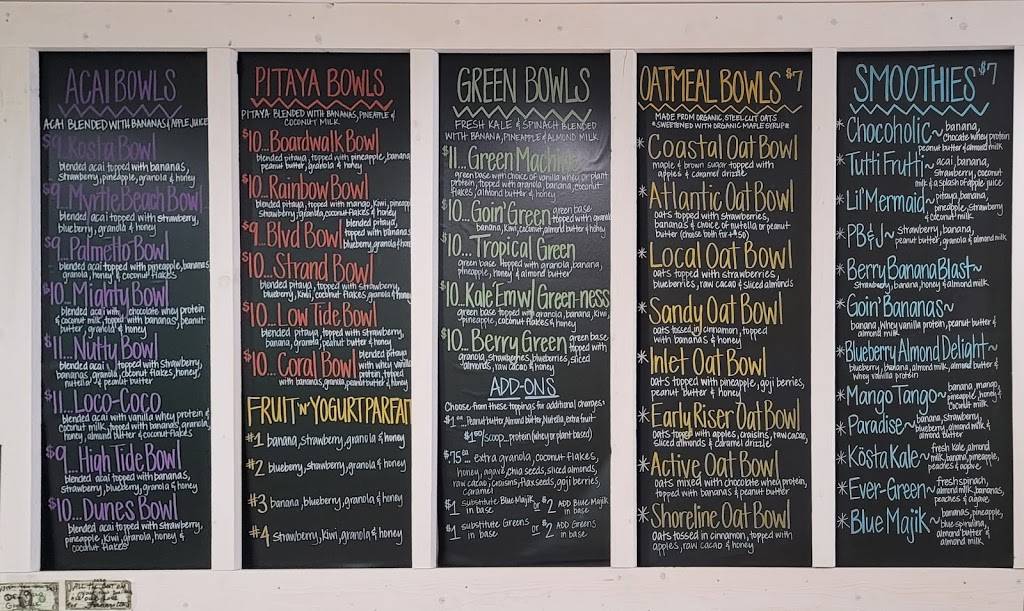 ACAI BOWLS
ACAI BLENDED WITH BANANAS & APPLE JUICE
$9...Kosta Bowl
blended acai topped with bananas,
strawberry, pineapple, granola & honey
Myrtle Beach Bowl
blended acai topped with strawberry,
blueberry, granola & honey
$9...Palmetto Bowl
blended acai topped with pineapple, bananas
granola, honey & coconut flakes
$10...Mighty Bowl
blended acai with chocolate whey protein
& coconut milk, topped with bananas, peanut
butter, granola & honey
$11...Nutty Bowl
blended acai topped with strawberry,
bananas, granola, coconut flakes, honey,
nutella & peanut butter
$11...Loco-Coco
blended acai with vanilla whey protein &
coconut milk, topped with bananas, granola,
honey, almond butter & coconut flakes
$9...High Tide Bowl
blended acai topped with bananas,
strawberry, blueberry, granola & honey
$10...Dunes Bowl
blended acai topped with strawberry,
pineapple, kiwi, granola, honey &
coconut flakes
PITAYA BOWLS
PITAYA BLENDED WITH BANANAS, PINEAPPLE &
COCONUT MILK
$10...Boardwalk Bowl
blended pitaya, topped with pineapple, banana,
peanut butter, granola & honey
$10...Rainbow Bowl
blended pitaya, topped with mango, kiwi, pineapple
strawberry, granola, coconut flakes & honey
$9...Blvd Bowl blended pitaya,
topped with bananas,
blueberry, granola & honey
$10...Strand Bowl
blended pitaya, topped with strawberry,
blueberry, kiwi, coconut flakes, granola & honey
$10...Low Tide Bowl
blended pitaya, topped with strawberry,
banana, granola, peanut butter & honey
$10...Coral Bowl blended pitaya
with whey vanilla
protein, topped
with bananas, granola, peanut butter & honey
FRUIT 'N' YOGURT PARFAIT
#1 banana, strawberry, granola & honey
#2 blueberry, strawberry, granola & honey
#3 banana, blueberry, granola & honey
#4 strawberry, kiwi, granola & honey
GREEN BOWLS
FRESH KALE & SPINACH BLENDED
WITH BANANA, PINEAPPLE & ALMOND MILK
$11...Green Machine
green base with choice of vanilla whey or plant
protein, topped with granola, banana, coconut
flakes, almond butter & honey
$10...Goin' Green green base
topped with granola
banana, kiwi, coconut, almond butter & honey
$10...Tropical Green
green base topped with granola, banana,
pineapple, honey & almond butter
$10...Kale 'Em w/ Green-ness
green base topped with granola, banana, kiwi,
pineapple, coconut flakes & honey
$10...Berry Green green base
topped with
granola, strawberries, blueberries, sliced
almonds, raw cacao & honey
ADD-ONS
Choose from these toppings for additional charges:
$1.00... Peanut butter, Almond butter, Nutella, extra fruit
$1.50 scoop... protein (whey or plant based)
$.75... Extra granola, coconut flakes,
honey, agave, chia seeds, sliced almonds,
raw cacao, craisins, flax seeds, goji berries,
caramel
$1 substitute Blue Majik in base or $2 ADD Blue Majik in base
$1 substitute Greens in base or $2 ADD Greens in base
OATMEAL BOWLS $7
MADE FROM ORGANIC, STEEL CUT OATS
*SWEETENED WITH ORGANIC MAPLE SYRUP*
* Coastal Oat Bowl
maple & brown sugar topped with
apples & caramel drizzle
* Atlantic Oat Bowl
oats topped with strawberries,
bananas & choice of nutella or peanut
butter (choose both for +$.50)
* Local Oat Bowl
oats topped with strawberries,
blueberries, raw cacao & sliced almonds
* Sandy Oat Bowl
oats tossed in cinnamon, topped
with bananas & honey
* Inlet Oat Bowl
oats topped with pineapple, goji berries,
peanut butter & honey
* Early Riser Oat Bowl
oats topped with apples, craisins, raw cacao,
sliced almonds & caramel drizzle
* Active Oat Bowl
oats mixed with chocolate whey protein,
topped with bananas & peanut butter
* Shoreline Oat Bowl
oats tossed in cinnamon, topped with
apples, raw cacao & honey
SMOOTHIES $7
* Chocoholic~ banana,
chocolate whey protein
peanut butter & almond milk
* Tutti Frutti~ acai, banana,
strawberry, coconut
milk & a splash of apple juice
* Lil' Mermaid~ pitaya, banana,
pineapple, strawberry
& coconut milk
* PB&J~ strawberry, banana,
peanut butter, granola & almond milk
* Berry Banana Blast~
strawberry, banana, honey & almond milk
* Goin' Bananas~
banana, whey vanilla protein, peanut butter &
almond milk
* Blueberry Almond Delight~
blueberry, banana, almond milk, almond butter &
whey vanilla protein
* Mango Tango~ banana, mango,
pineapple, honey &
coconut milk
* Paradise~ banana, strawberry,
blueberry, almond milk &
almond butter
* Kösta Kale~ fresh kale, almond
milk, banana, pineapple,
peaches & agave
* Ever-Green~ fresh spinach,
almond milk, bananas,
peaches & honey
* Blue Majik~ bananas, pineapple,
blue spirulina,
almond butter &
almond milk